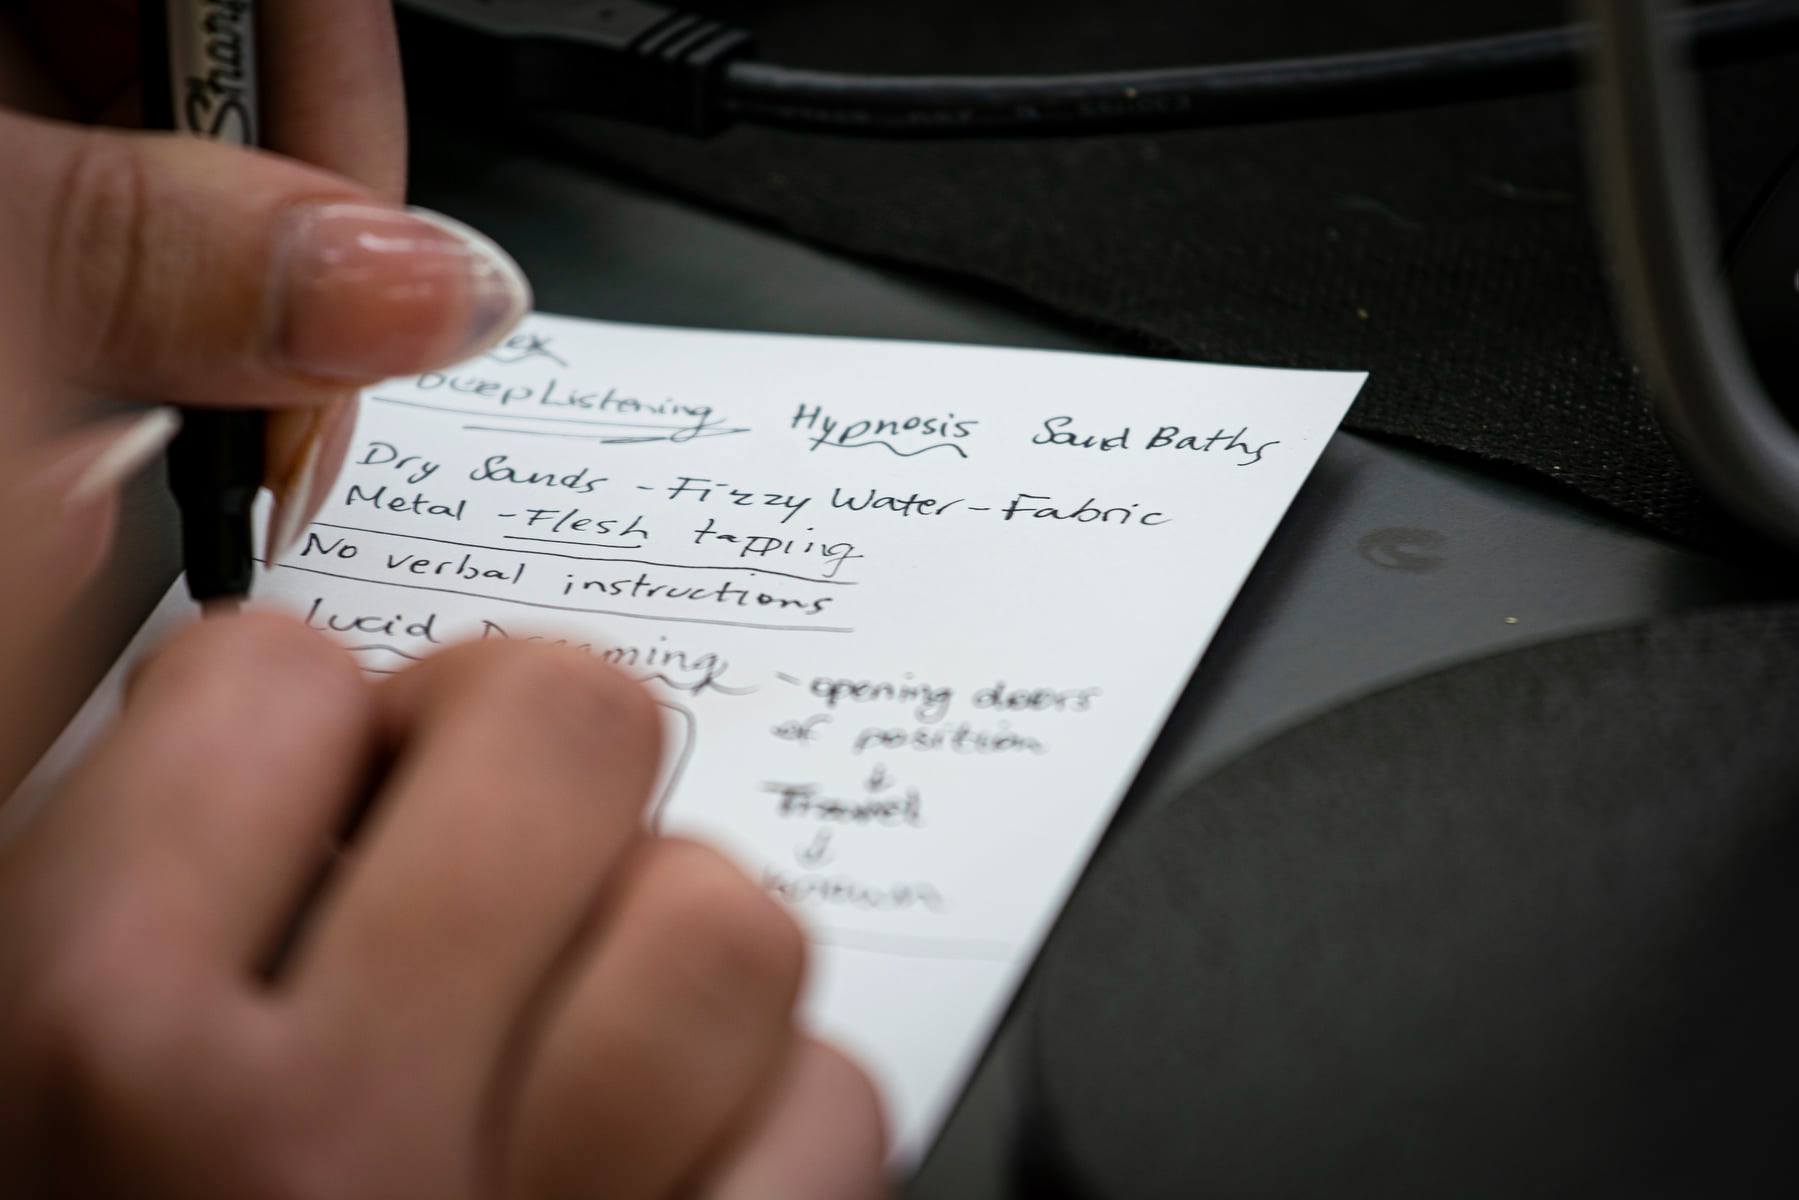 Shar
ex
Deep Listening Hypnosis Sound Baths
Dry Sands - Fizzy Water - Fabric
Metal - Flesh tapping
No verbal instructions
Lucid Dreaming - opening doors
of position
↓
Travel
↓